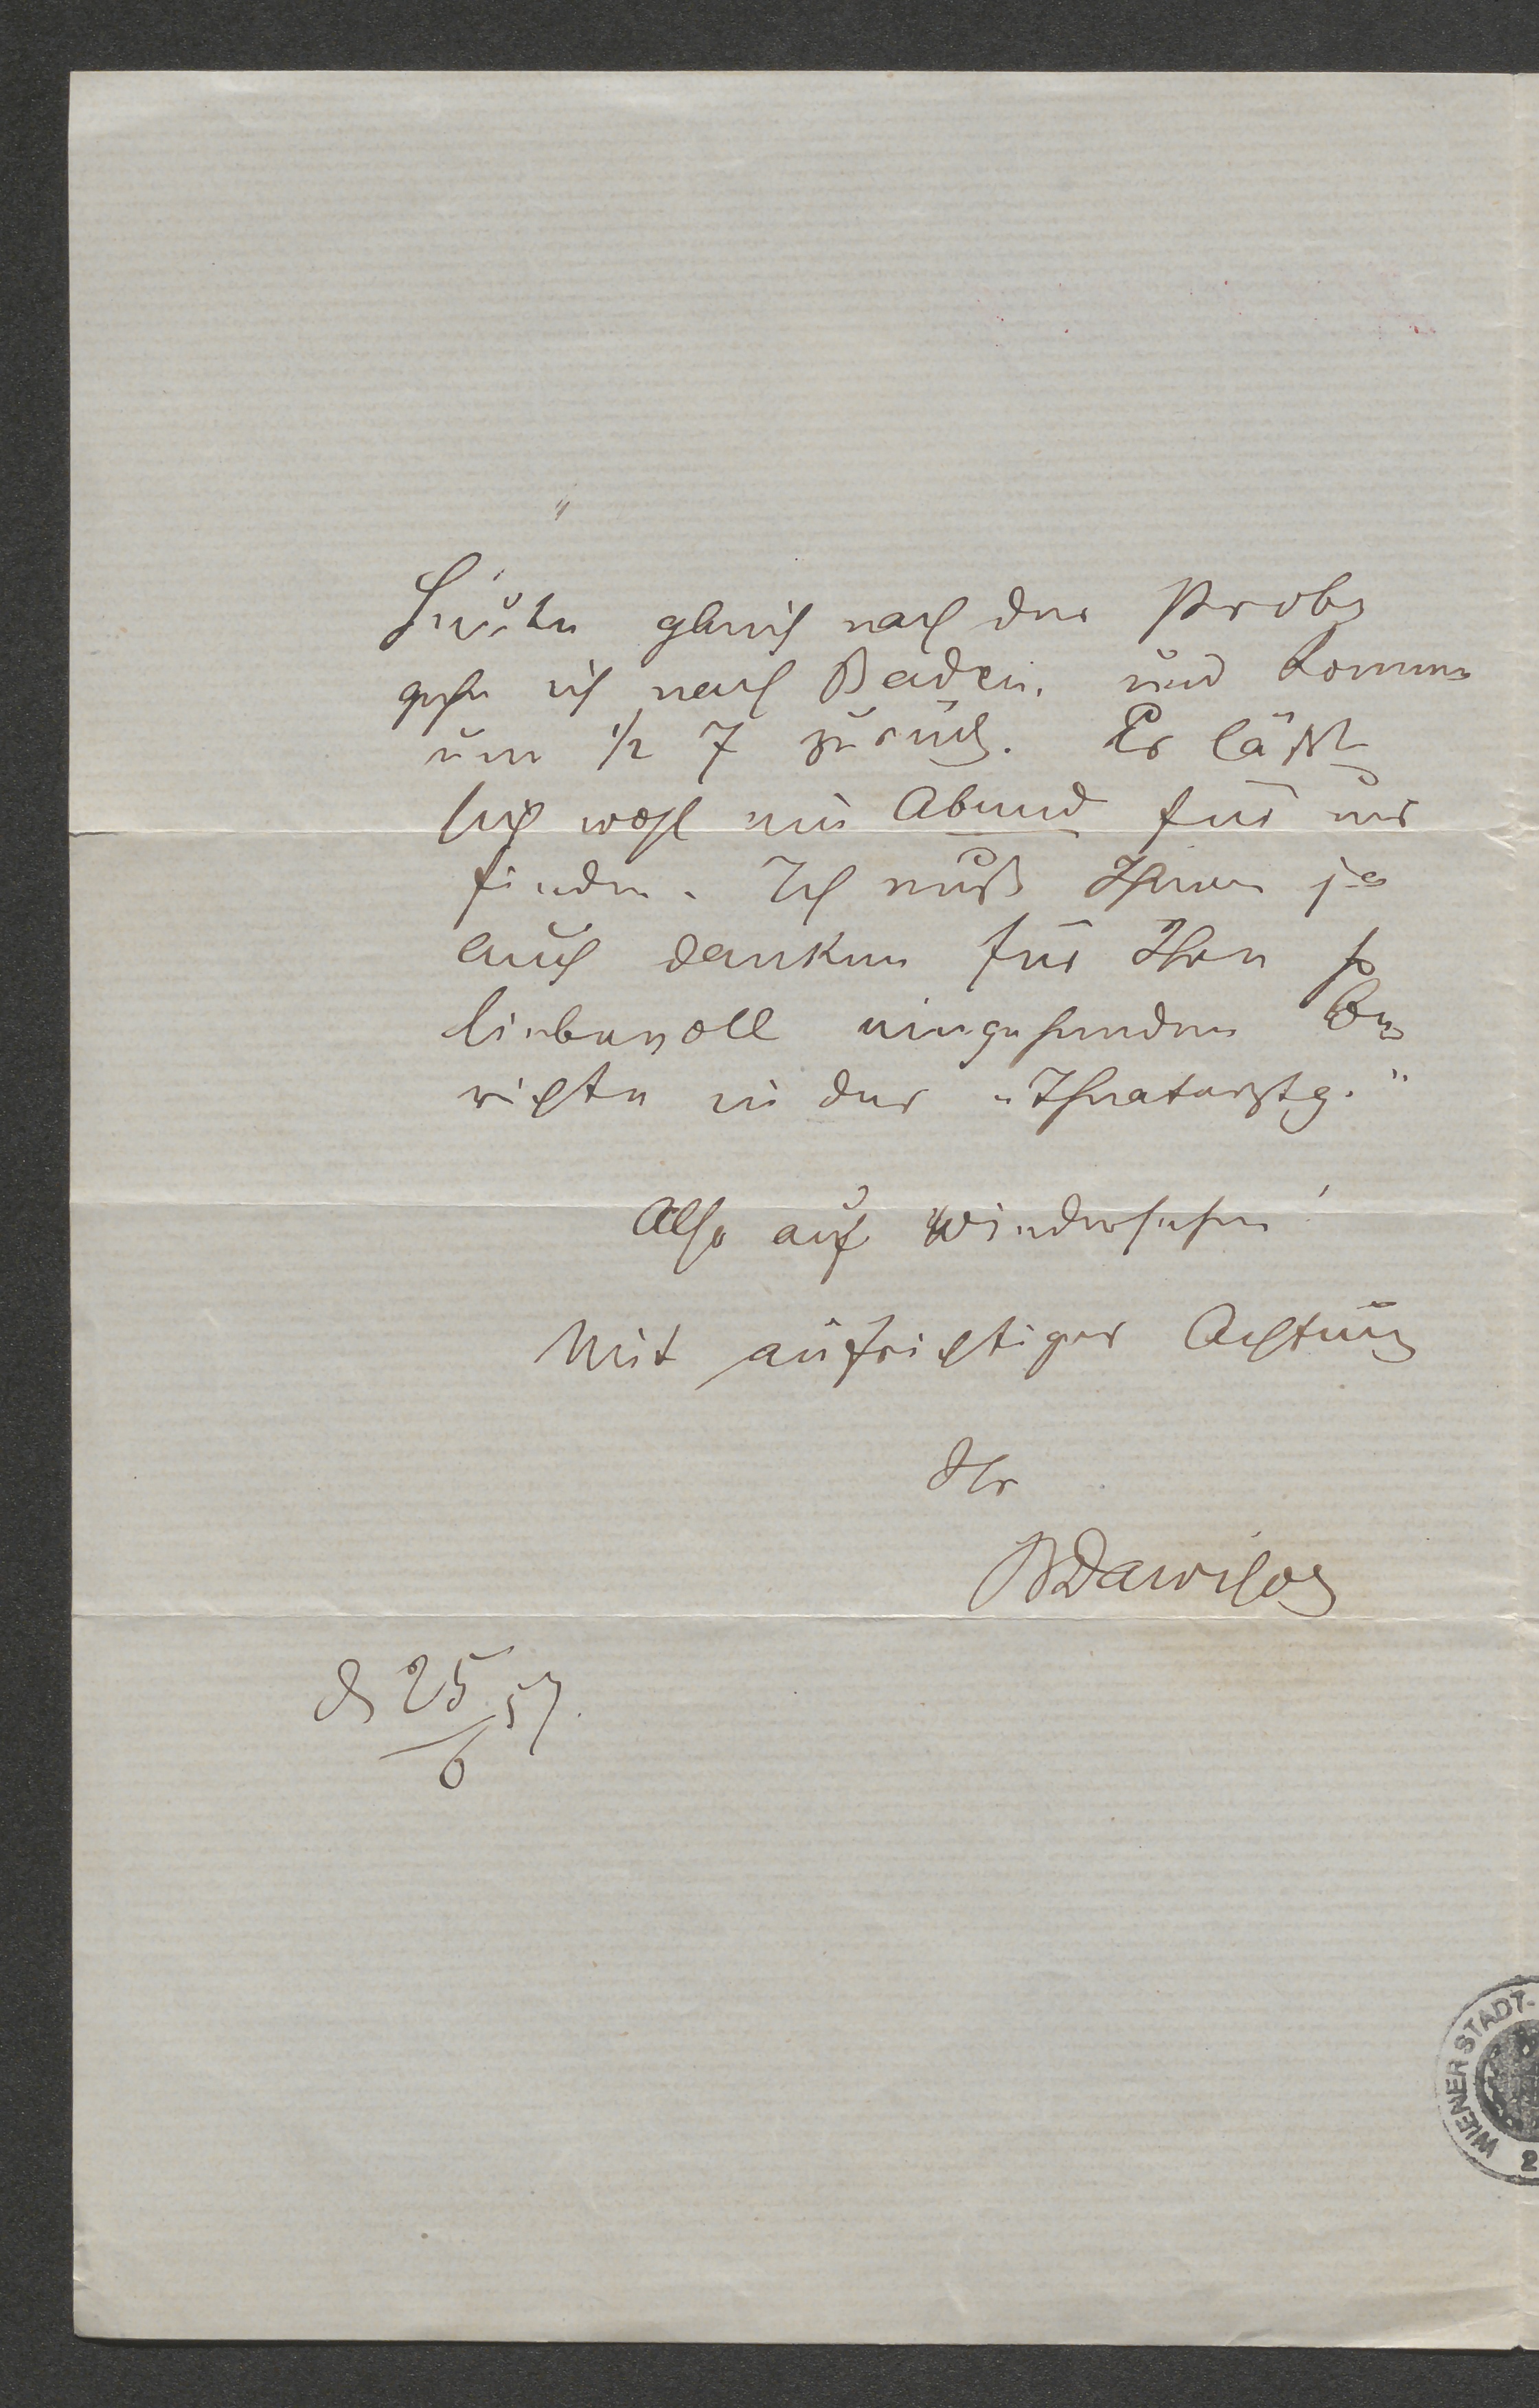 Heute gleich nach der Probe
gehe ich nach Baden, und komme
um 1/2 7 zurück. Es läßt
sich wohl ein Abend für uns
finden. Ich muß Ihnen ja
auch danken für Ihre so
liebevoll eingehenden Be
richte in der „Theaterztg."
Also auf Wiedersehen!
Mit aufrichtiger Achtung
Ihr
BDawison
d 25/6 57.
WIENER STADT-
2